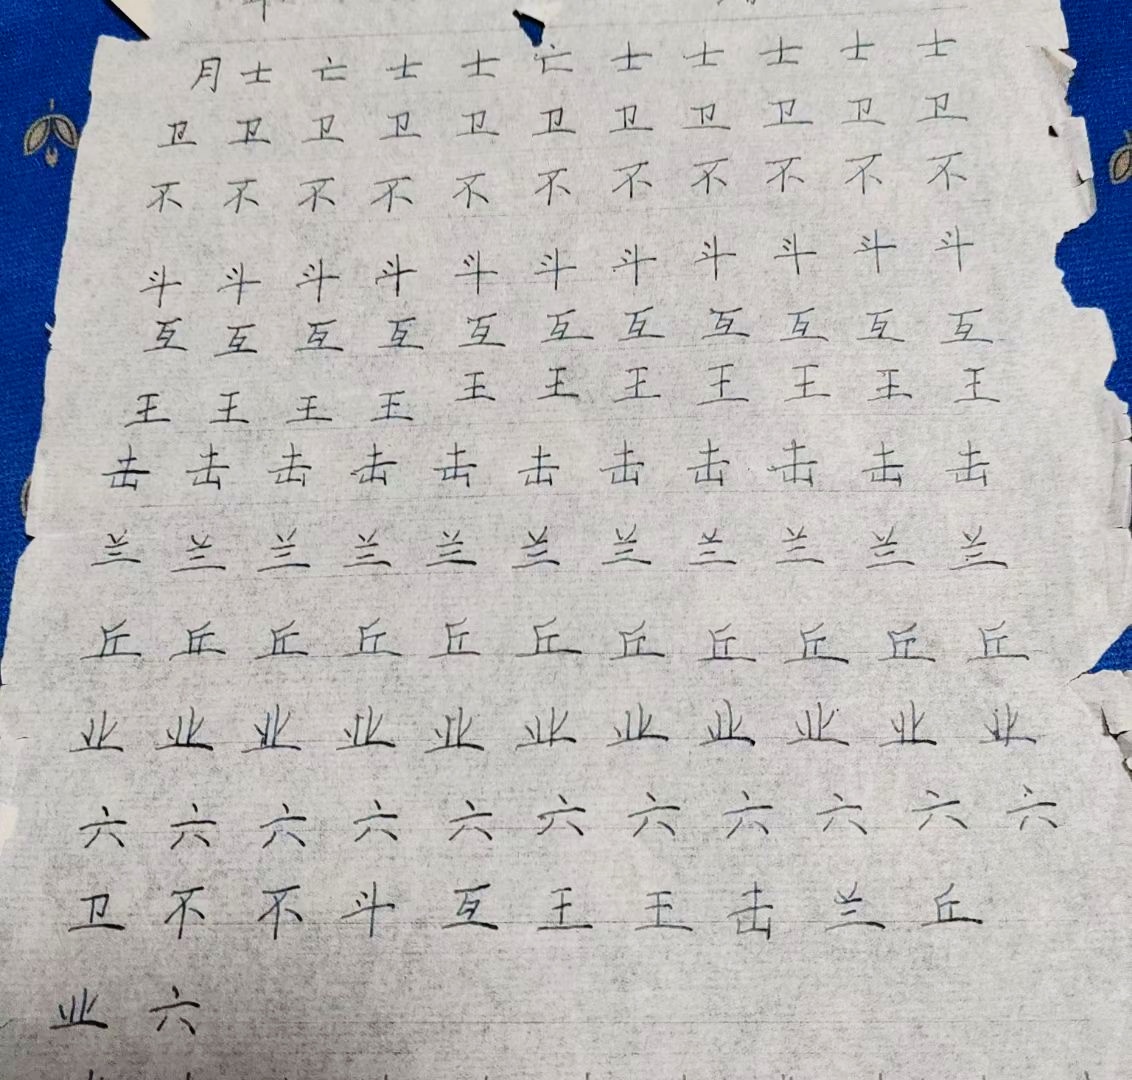 月士亡士士亡士士士士士
卫卫卫卫卫卫卫卫卫卫卫
不不不不不不不不不不不
斗斗斗斗斗斗斗斗斗斗斗
互互互互互互互互互互互
王王王王王王王王王王王
击击击击击击击击击击击
兰兰兰兰兰兰兰兰兰兰兰
丘丘丘丘丘丘丘丘丘丘丘
业业业业业业业业业业业
六六六六六六六六六六六
卫不不斗互王王击兰丘
业六